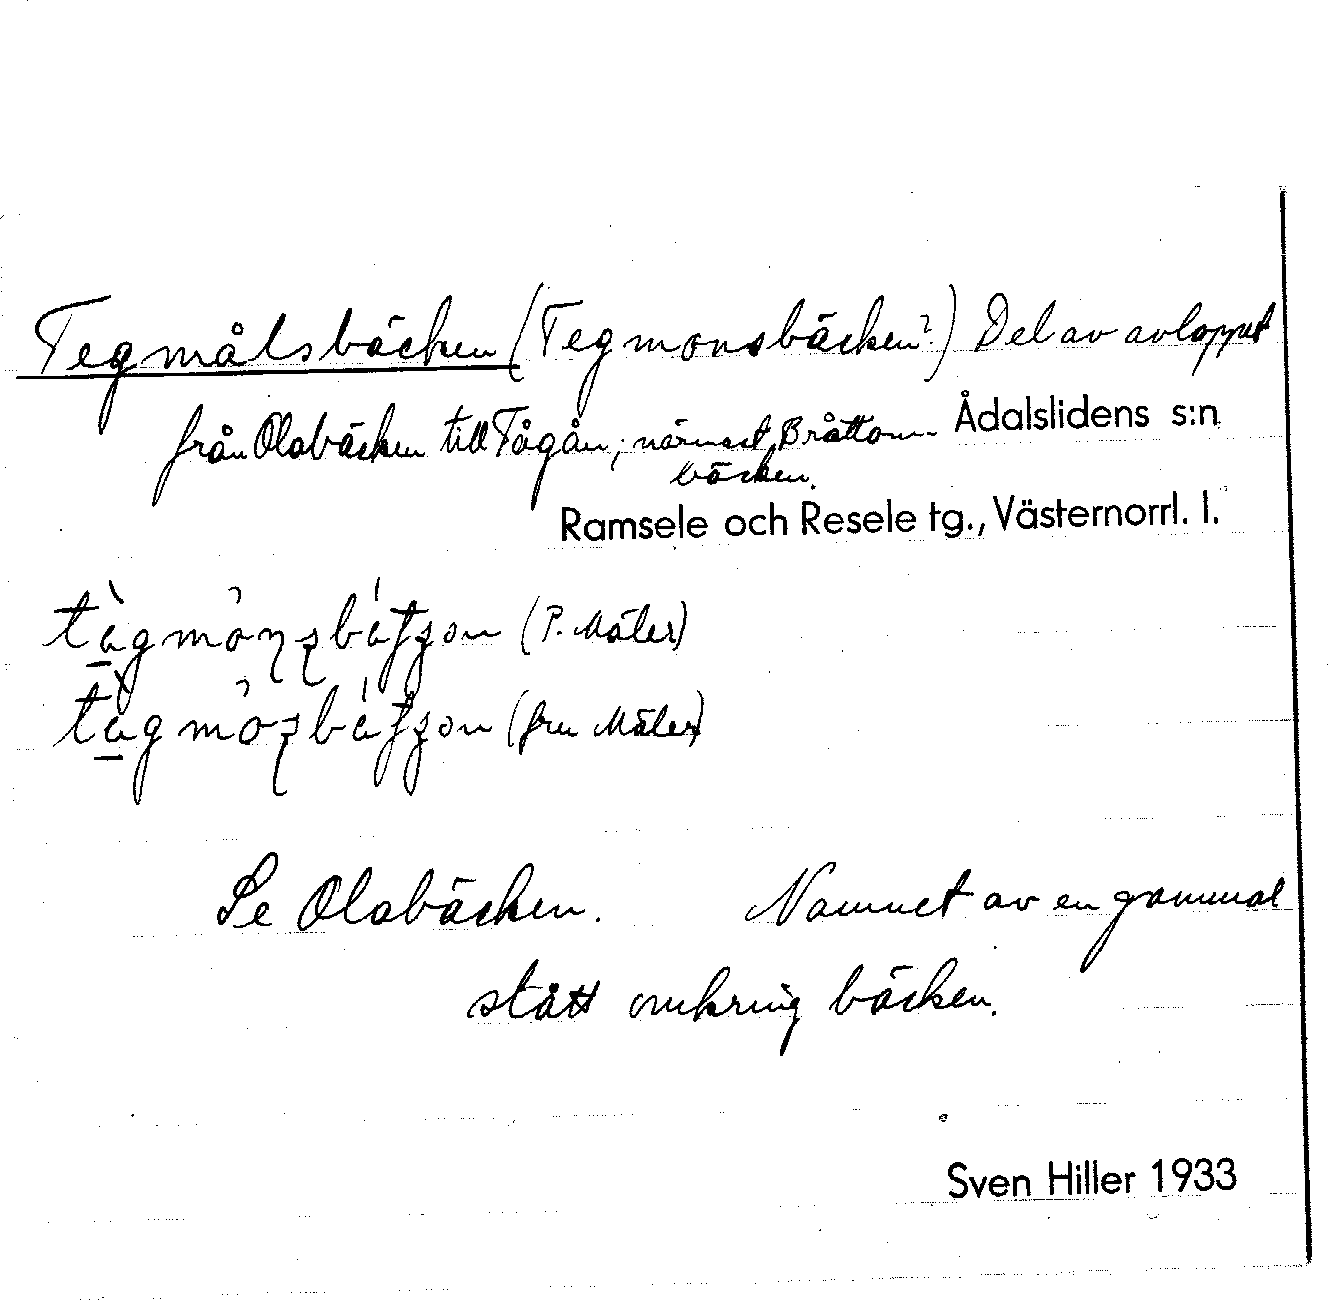 Tegmålsbäcken (Tegmonsbäcken?) Del av avloppet
från Olabäcken till Tågån; närmast Bråttom-
bäcken.
Ådalslidens s:n
Ramsele och Resele tg., Västernorrl. l.
(P. Mäler)
(fru Mäler)
Se Olabäcken. Namnet av en gammal
slått omkring bäcken.
Sven Hiller 1933